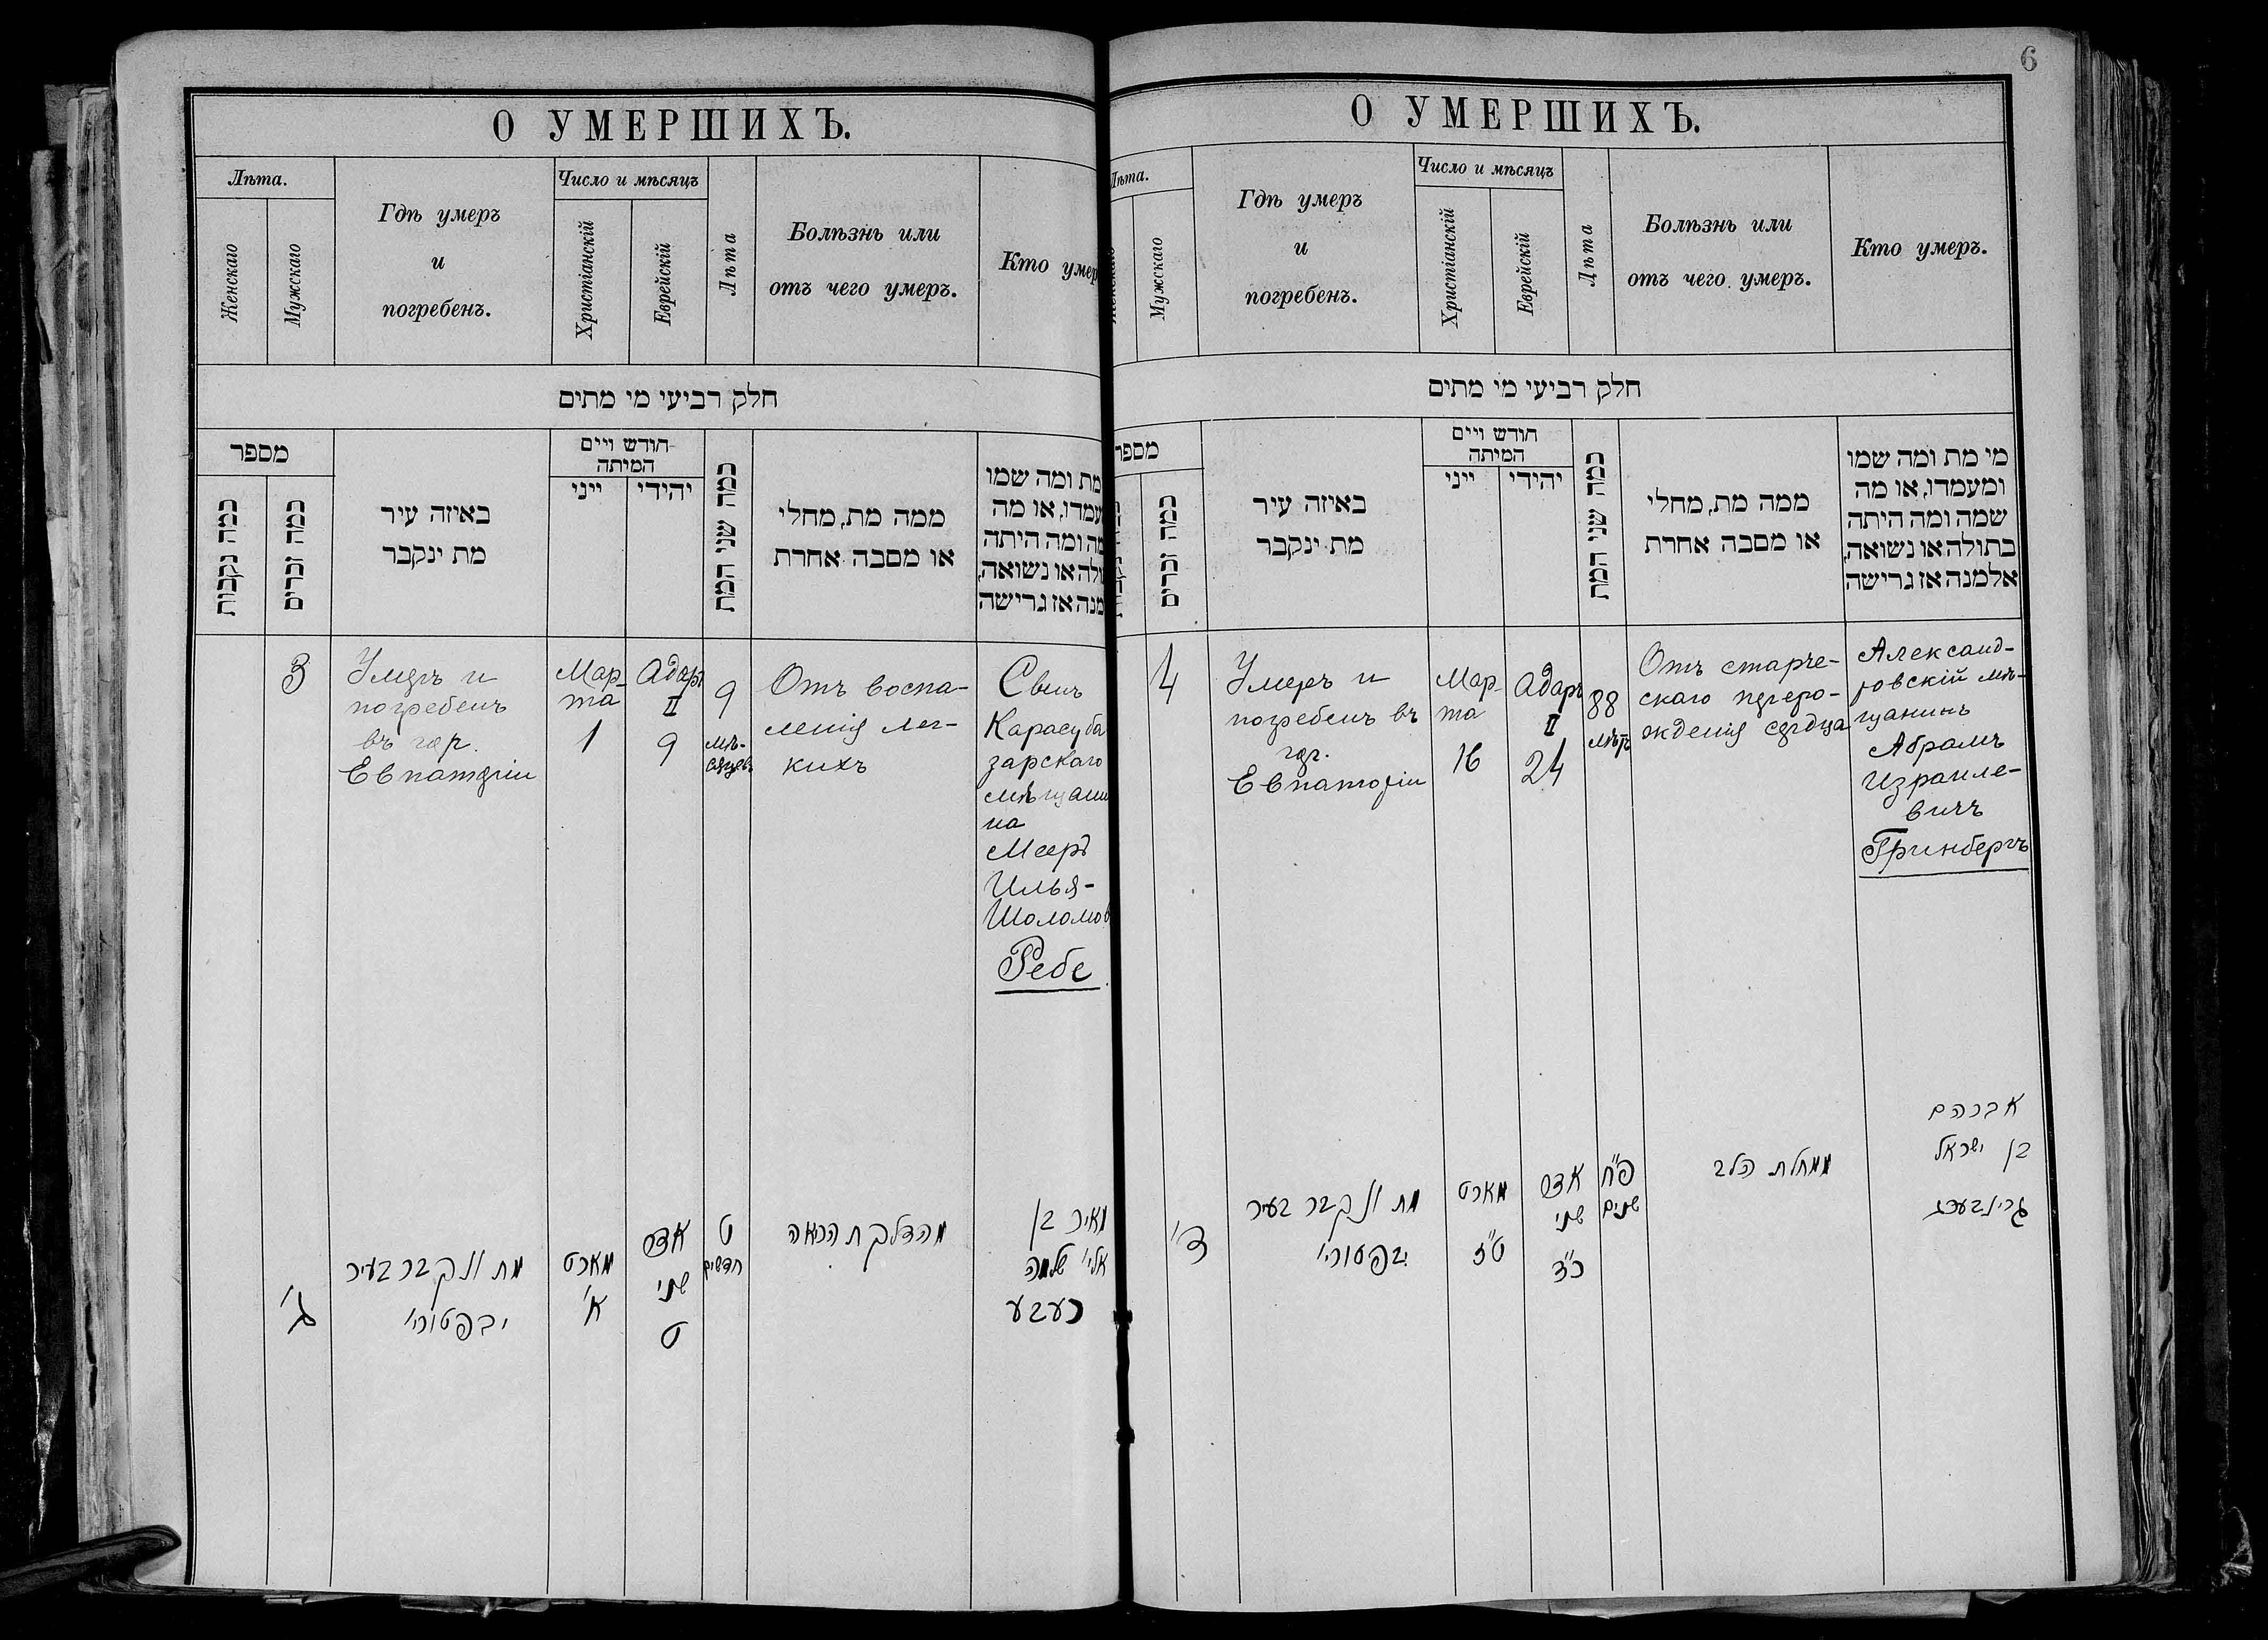 О УМЕРШИХЪ.
Лѣта.
Женскаго
Мужскаго
Гдѣ умеръ
и
погребенъ.
Число и мѣсяцъ
Христіанскій
Еврейскій
Лѣта
Болѣзнь или
отъ чего умеръ.
Кто умер
חלק רביעי מי מתים
מספר
כמה נקבות
כמה זכרים
באיזה עיר
מת ינקבר
חודש ויים
המיתה
ייני
יהודי
כמה שני המת
ממה מת, מחלי
או מסבה אחרת
מת ומה שמו
עמדו, או מה
מה ומה היתה
ולה או נשואה,
מנה אז גרישה
3
Умеръ и
погребенъ
въ гор.
Евпаторіи
Мар-
та
1
Адаръ
II
9
9
мѣ-
сяцевъ
Отъ воспа-
ленія лег-
кихъ
Сынъ
Карасуба
зарскаго
мѣщани
на
Мееръ
Илья-
Шоломов
Ребе
ג'
מת ונקבר בעיר
יבפטורי'
מארט
א'
אדר
שני
ט
ט
חדשים
מהדלקת הריאה
מאיר בן
אלי' שלמה
רעבע
6
О УМЕРШИХЪ.
Лѣта.
Женскаго
Мужскаго
Гдѣ умеръ
и
погребенъ.
Число и мѣсяцъ
Христіанскій
Еврейскій
Лѣта
Болѣзнь или
отъ чего умеръ.
Кто умеръ.
חלק רביעי מי מתים
מספר
כמה זכרים
באיזה עיר
מת ינקבר
חודש ויים
המיתה
ייני
יהודי
כמה שני המת
ממה מת, מחלי
או מסבה אחרת
מי מת ומה שמו
ומעמדו, או מה
שמה ומה היתה
בתולה או נשואה,
אלמנה אז גרישה
4
Умеръ и
погребенъ въ
гор.
Евпаторіи
Мар-
та
16
Адаръ
II
24
88
лѣтъ
Отъ старче-
скаго перero-
жденія сердца
Александ-
ровскій мѣ-
щанинъ
Абрамъ
Израиле-
вичъ
Гринбергъ
ד'
מת ונקבר בעיר
יבפטורי'
מארט
ט"ז
אדר
שני
כ"ד
פ"ח
שנים
ממחלת הלב
אברהם
בן ישראל
גרינבערג